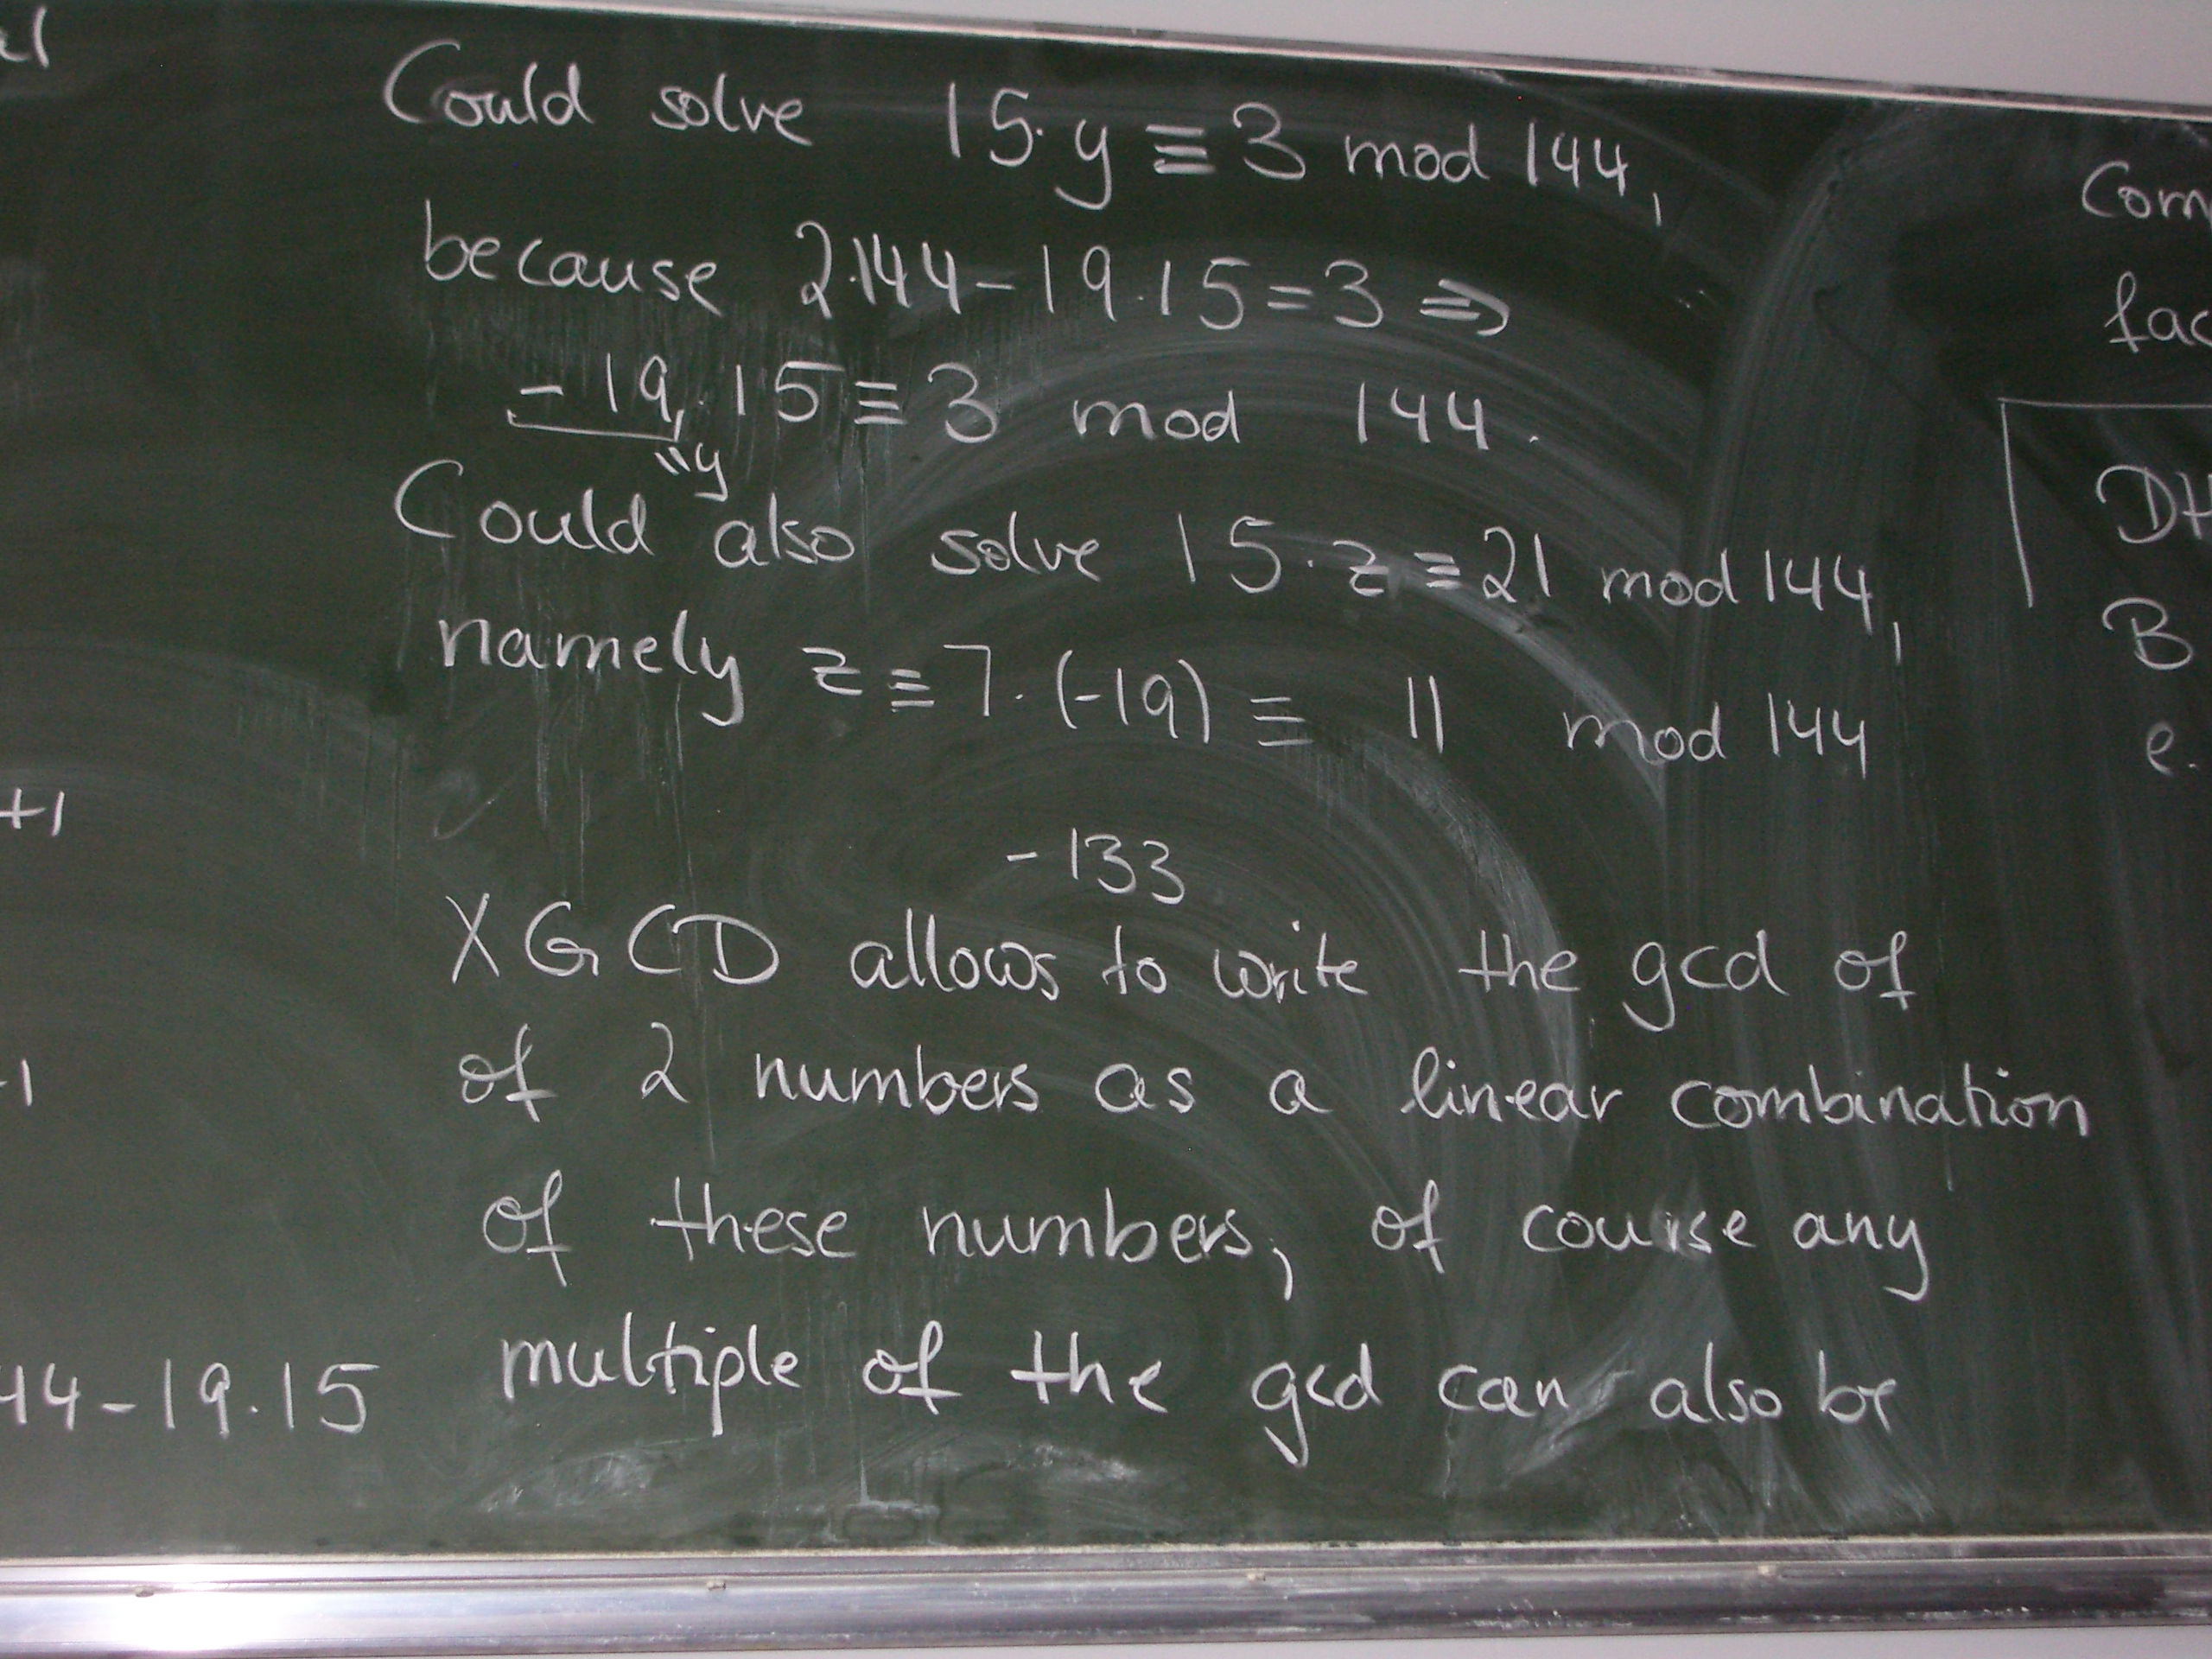 al
Could solve 15·y ≡ 3 mod 144,
because 2·144 - 19·15 = 3 ⇒
-19·15 ≡ 3 mod 144.
"y
Could also solve 15·z ≡ 21 mod 144,
namely z ≡ 7·(-19) ≡ 11 mod 144
-133
XGCD allows to write the gcd of
of 2 numbers as a linear combination
of these numbers, of course any
multiple of the gcd can also be
+1
-1
44-19.15
Com
fac
DH
B
e.